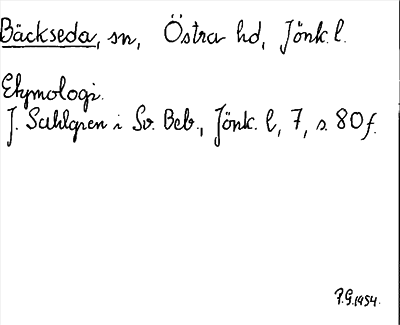 Bäckseda, sn, Östra hd, Jönk. l.
Etymologi.
J. Sahlgren i Sv. Beb., Jönk. l, 7, s. 80 f.
P.G. 1954.